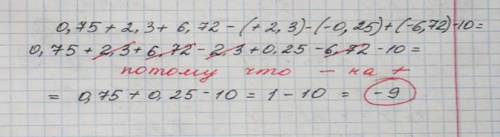 0,75 + 2,3 + 6,72 - (+2,3) - (-0,25) + (-6,72) - 10 =
0,75 + 2,3 + 6,72 - 2,3 + 0,25 - 6,72 - 10 =
потому что - на +
= 0,75 + 0,25 - 10 = 1 - 10 = -9